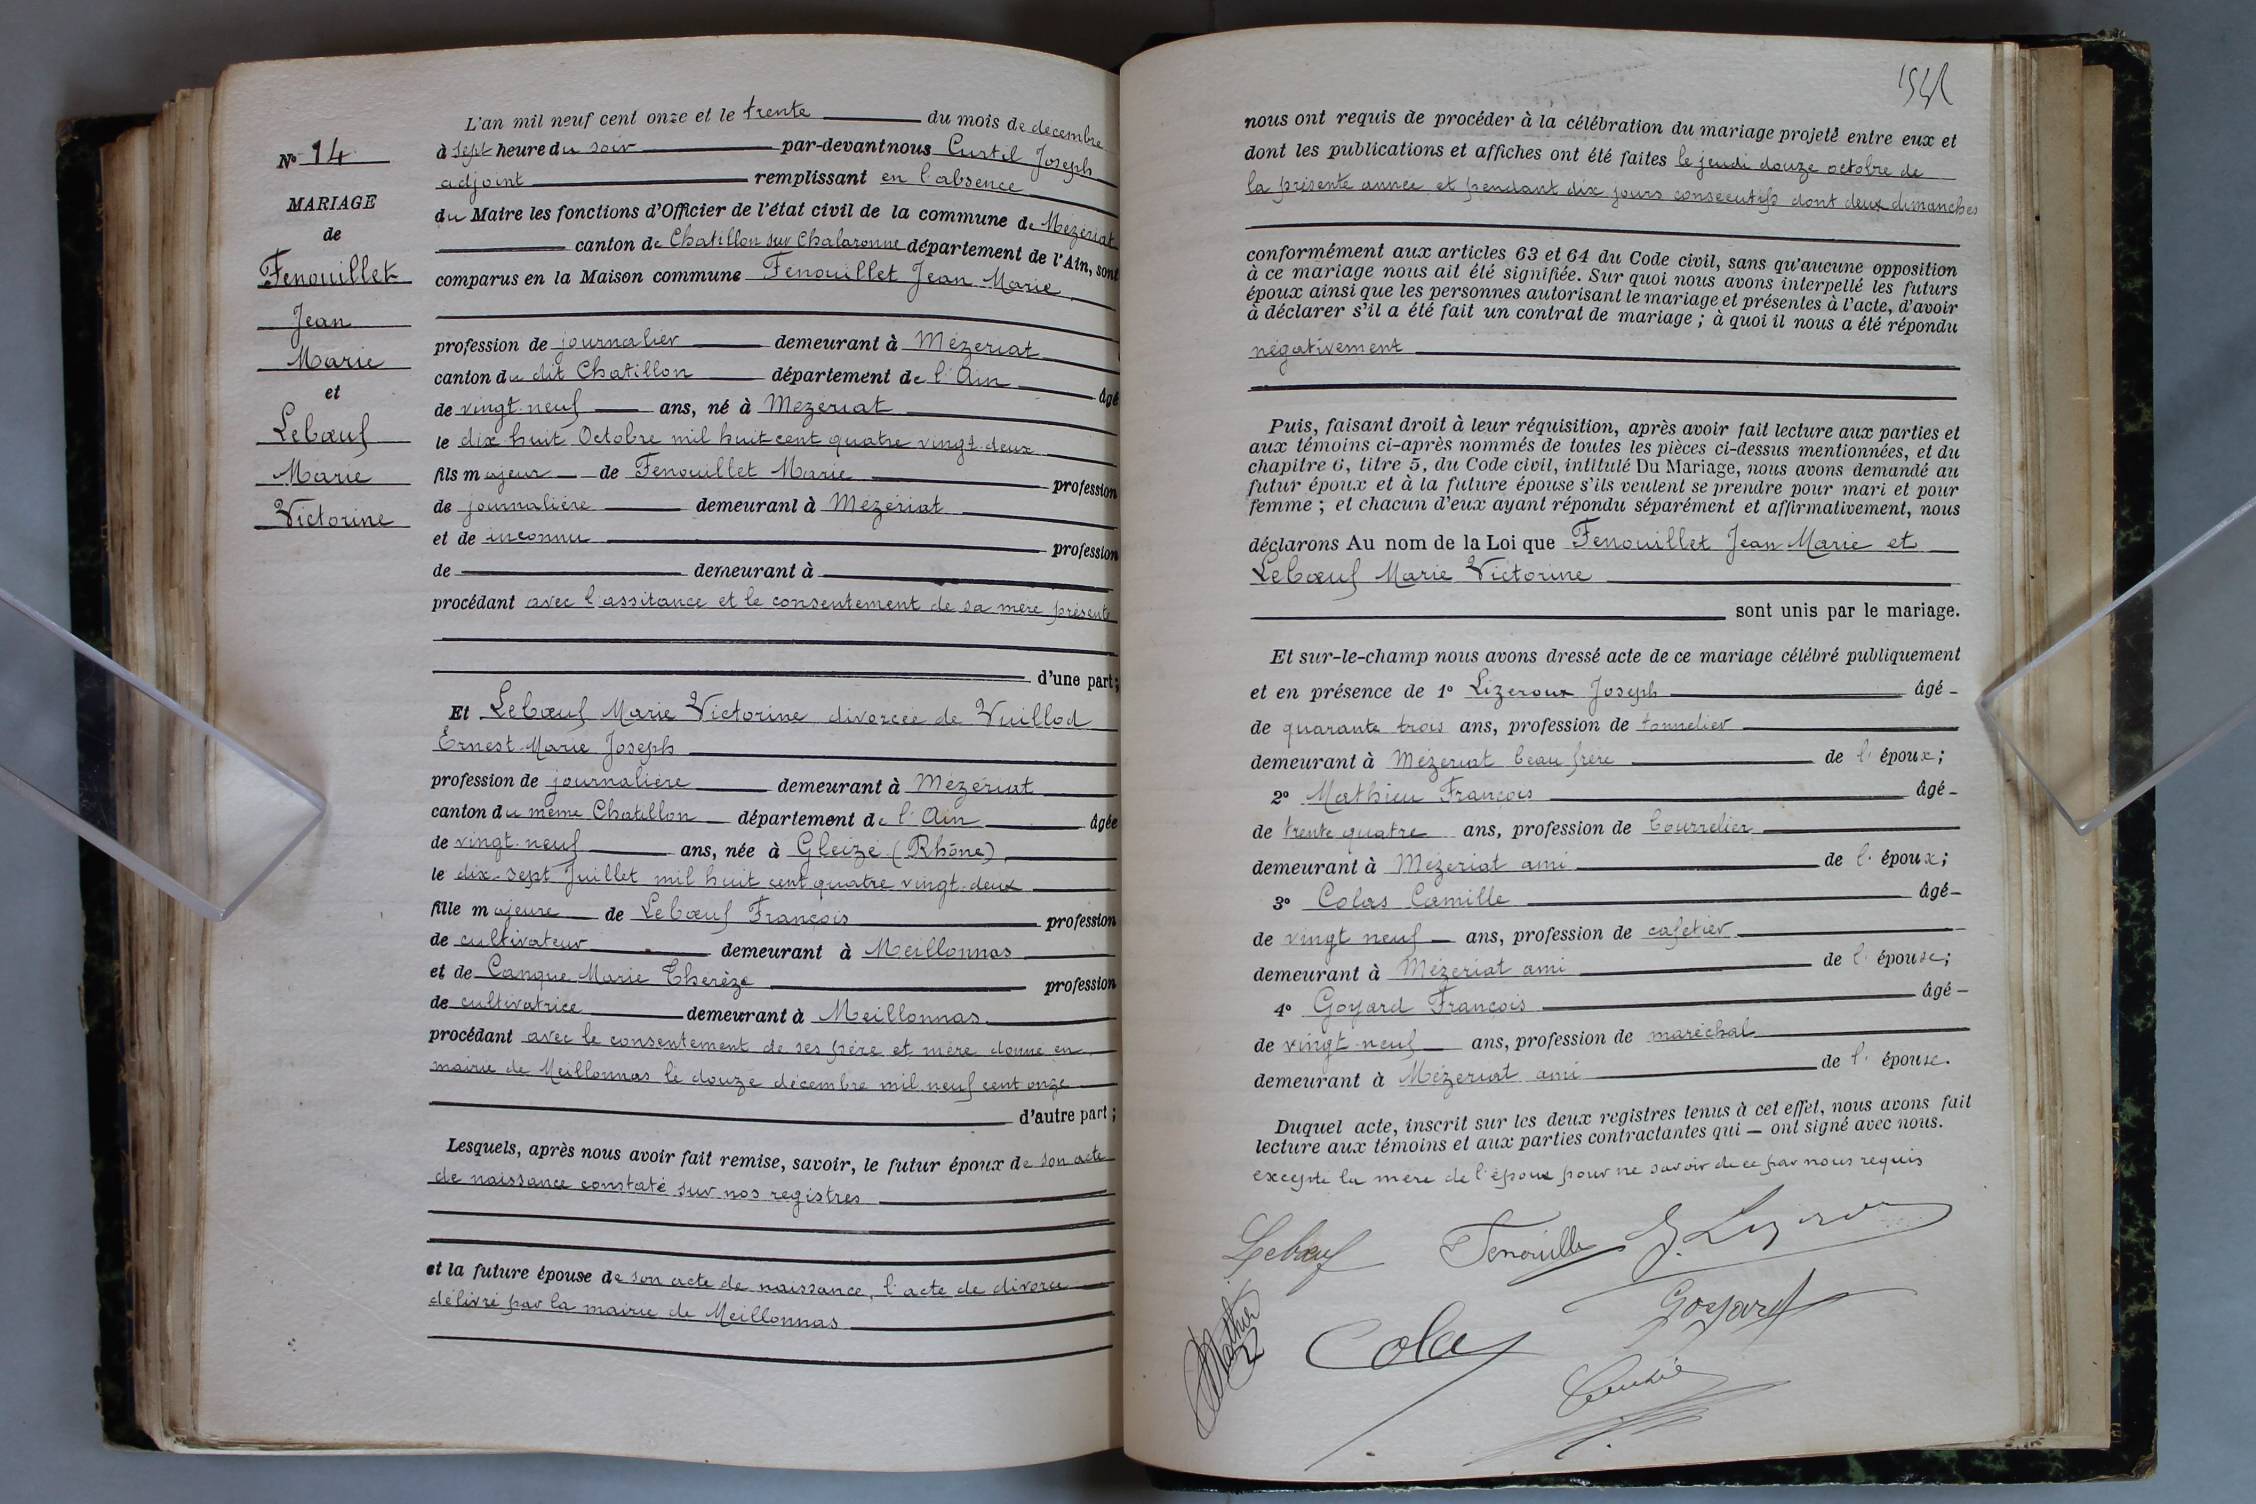 N° 14
MARIAGE
de
Fenouillet
Jean
Marie
et
Lebœuf
Marie
Victorine
L'an mil neuf cent onze et le trente du mois de décembre
à sept heure du soir par-devant nous Curtil Joseph
adjoint remplissant en l'absence
du Maire les fonctions d'Officier de l'état civil de la commune de Mézériat
canton de Chatillon sur Chalaronne département de l'Ain, sont
comparus en la Maison commune Fenouillet Jean Marie
profession de journalier demeurant à Mézeriat
canton du dit Chatillon département de l'Ain âgé
de vingt-neuf ans, né à Mezeriat
le dix huit Octobre mil huit cent quatre vingt-deux
fils majeur de Fenouillet Marie profession
de journalière demeurant à Mézériat
et de inconnu profession
de demeurant à
procédant avec l'assitance et le consentement de sa mère présente
d'une part;
Et Lebœuf Marie Victorine divorcée de Vuillod
Ernest Marie Joseph
profession de journalière demeurant à Mézériat
canton du même Chatillon département de l'Ain âgée
de vingt-neuf ans, née à Gleizé (Rhône)
le dix-sept Juillet mil huit cent quatre vingt-deux
fille majeure de Lebœuf François profession
de cultivateur demeurant à Meillonnas
et de Canque Marie Therèze profession
de cultivatrice demeurant à Meillonnas
procédant avec le consentement de ses père et mère donné en
mairie de Meillonnas le douze décembre mil neuf cent onze
d'autre part;
Lesquels, après nous avoir fait remise, savoir, le futur époux de son acte
de naissance constaté sur nos registres
et la future épouse de son acte de naissance, l'acte de divorce
délivré par la mairie de Meillonnas
nous ont requis de procéder à la célébration du mariage projeté entre eux et
dont les publications et affiches ont été faites le jeudi douze octobre de
la présente année et pendant dix jours consécutifs dont deux dimanches
conformément aux articles 63 et 64 du Code civil, sans qu'aucune opposition
à ce mariage nous ait été signifiée. Sur quoi nous avons interpellé les futurs
époux ainsi que les personnes autorisant le mariage et présentes à l'acte, d'avoir
à déclarer s'il a été fait un contrat de mariage; à quoi il nous a été répondu
négativement
Puis, faisant droit à leur réquisition, après avoir fait lecture aux parties et
aux témoins ci-après nommés de toutes les pièces ci-dessus mentionnées, et du
chapitre 6, titre 5, du Code civil, intitulé Du Mariage, nous avons demandé au
futur époux et à la future épouse s'ils veulent se prendre pour mari et pour
femme; et chacun d'eux ayant répondu séparément et affirmativement, nous
déclarons Au nom de la Loi que Fenouillet Jean Marie et
Lebœuf Marie Victorine
sont unis par le mariage.
Et sur-le-champ nous avons dressé acte de ce mariage célébré publiquement
et en présence de 1° Lizeroux Joseph âgé
de quarante trois ans, profession de tonnelier
demeurant à Mézeriat beau frère de l'époux;
2° Mathieu François âgé
de trente quatre ans, profession de bourrelier
demeurant à Mézeriat ami de l'époux;
3° Colas Camille âgé
de vingt neuf ans, profession de cafetier
demeurant à Mézeriat ami de l'épouse;
4° Goyard François âgé
de vingt-neuf ans, profession de maréchal
demeurant à Mézeriat ami de l'épouse.
Duquel acte, inscrit sur les deux registres tenus à cet effet, nous avons fait
lecture aux témoins et aux parties contractantes qui ont signé avec nous.
excepté la mère de l'époux pour ne savoir de ce par nous requis
Lebœuf Fenouille
Goyard
Mathieu
Colas